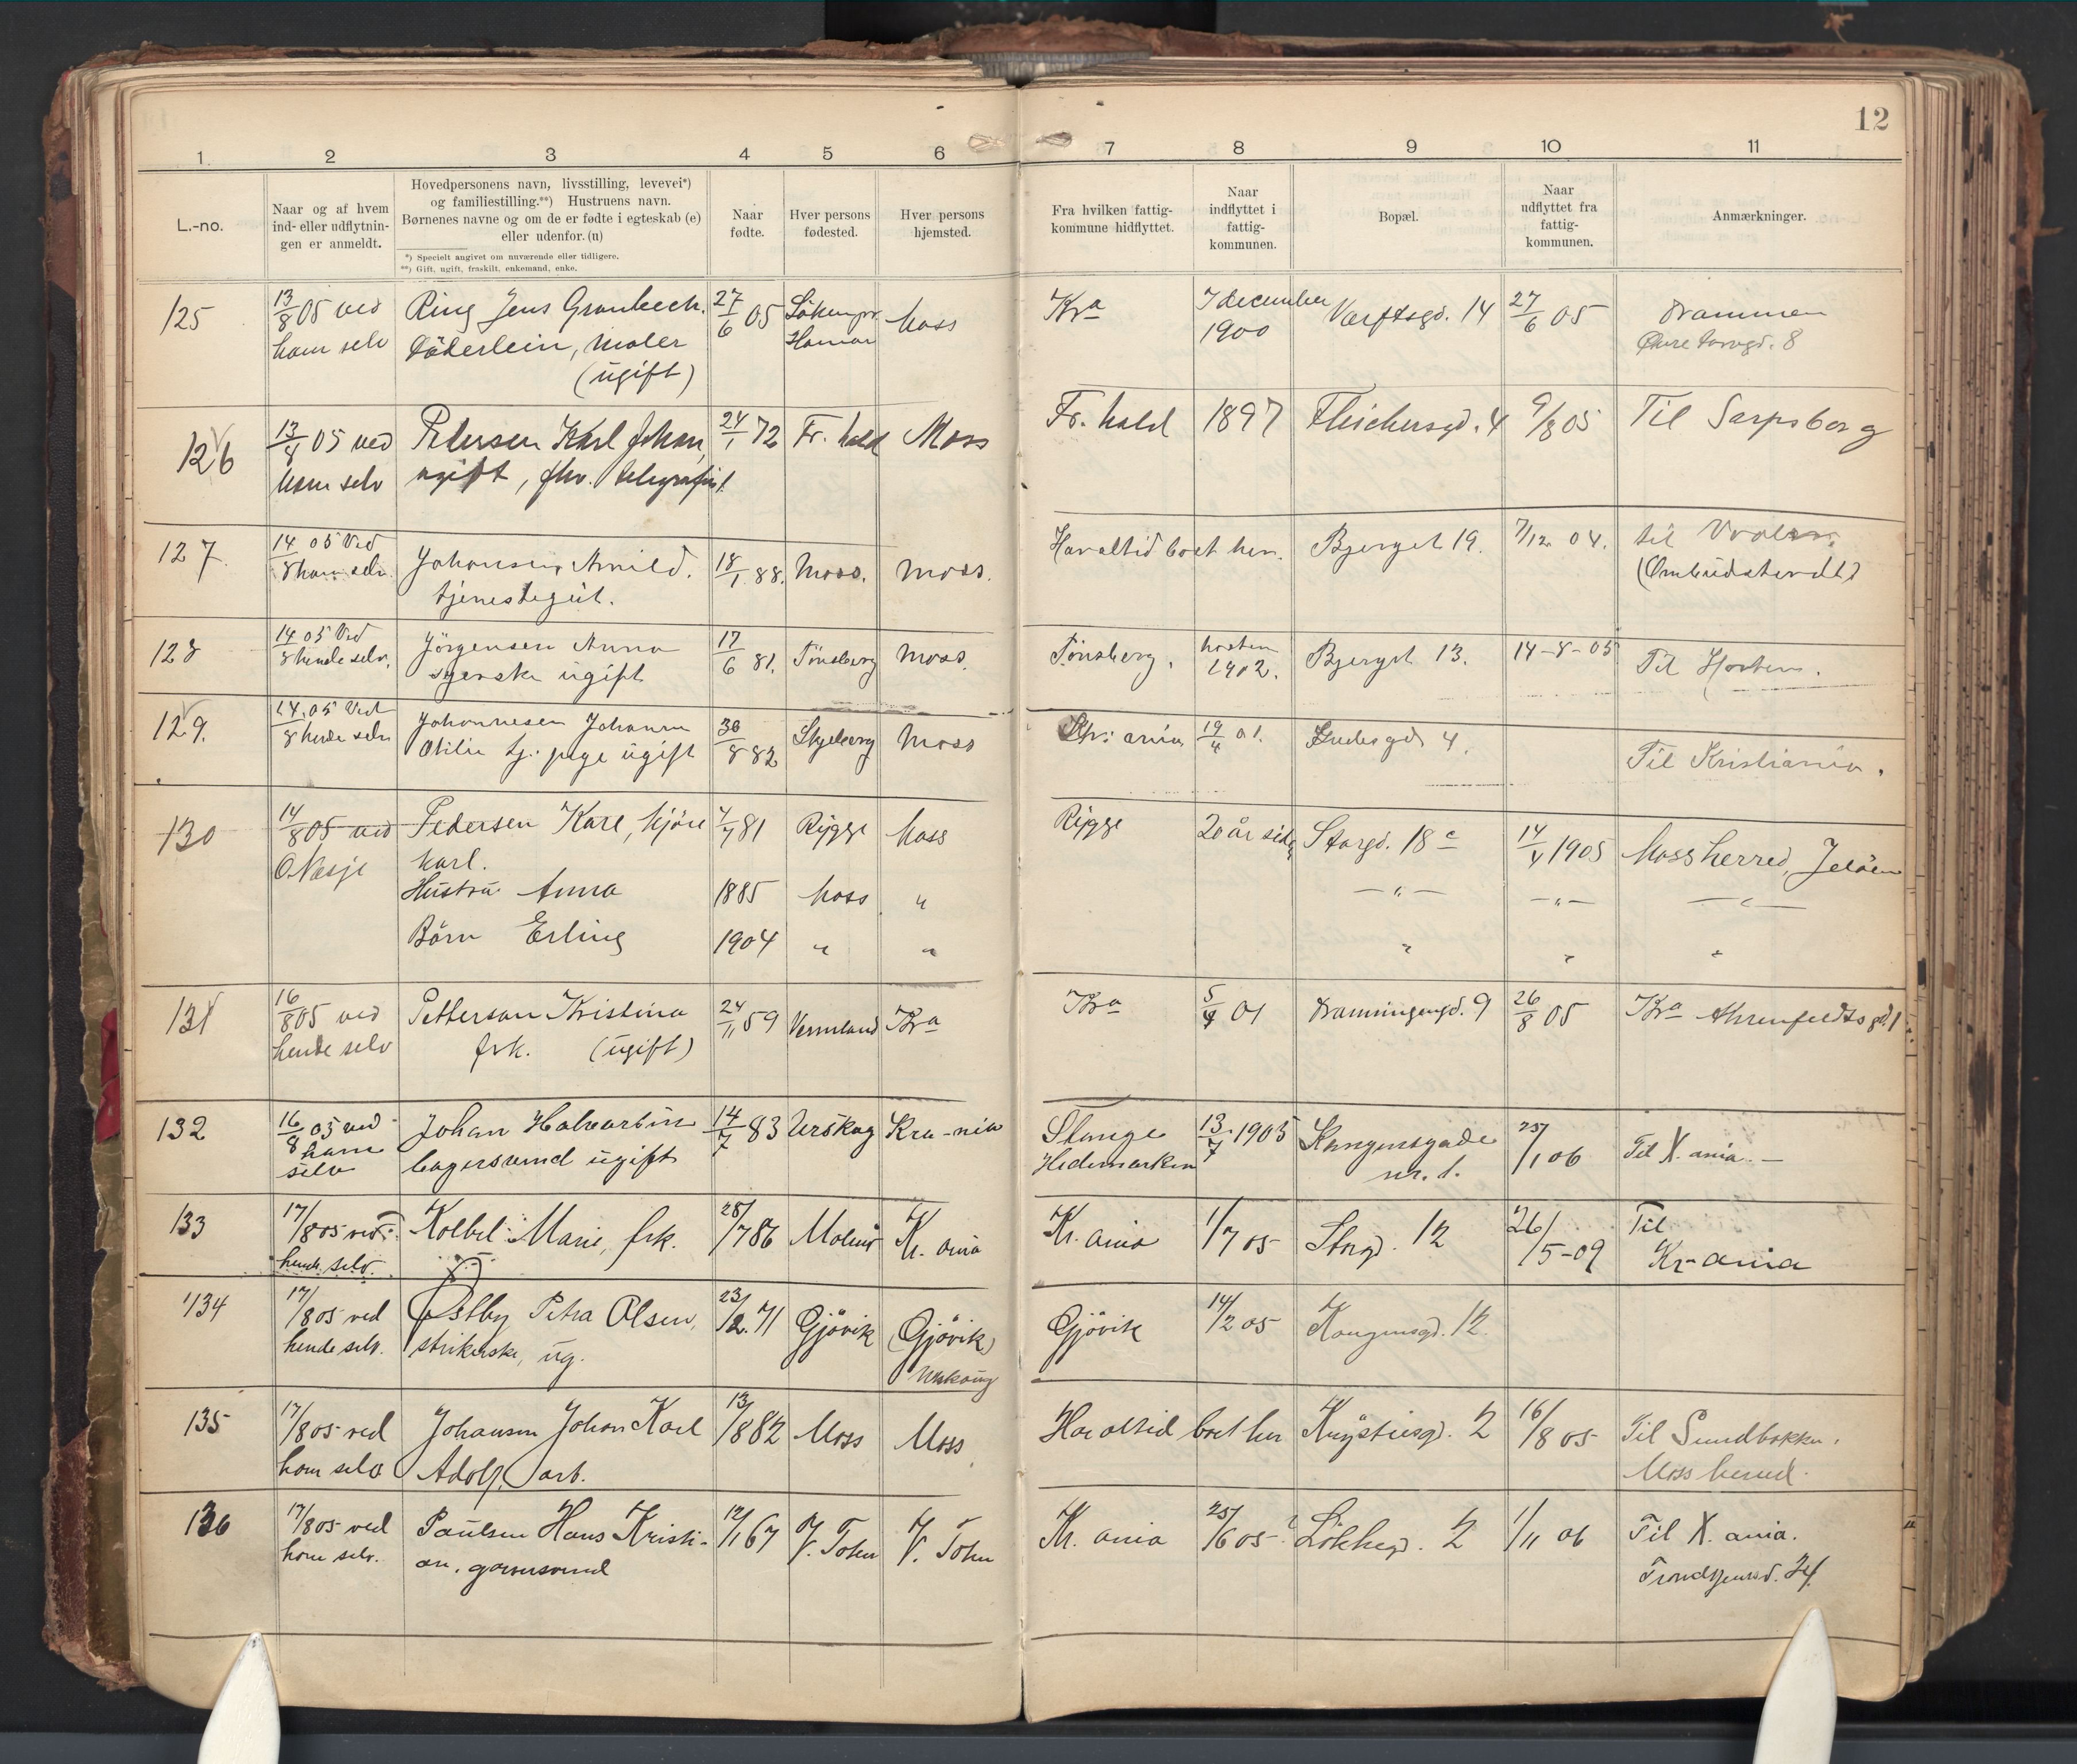 12
1.
2
3
4
5
6
7
8
9
10
11
L.-no.
Naar og af hvem
ind- eller udflytnin-
gen er anmeldt.
Hovedpersonens navn, livsstilling, levevei*)
og familiestilling.**) Hustruens navn.
Børnenes navne og om de er fødte i egteskab (e)
eller udenfor. (u)
*) Specielt angivet om nuværende eller tidligere.
**) Gift, ugift, fraskilt, enkemand, enke.
Naar
fødte.
Hver persons
fødested.
Hver persons
hjemsted.
Fra hvilken fattig-
kommune hidflyttet.
Naar
indflyttet i
fattig-
kommunen.
Bopæl.
Naar
udflyttet fra
fattig-
kommunen.
Anmærkninger.
125
13/8 05 ved
ham selv
Ring Jens Grønbech.
Döderlein, maler
(ugift)
27/6 05
Hamar
Moss
Kra
7 december
1900
Værftsgd. 14
27/6 05
Drammen
Øvre Torvgd. 8
126
13/8 05 ved
ham selv
Petersen Karl Johan,
ugift, fhv. telegrafist
24/1 72
Fr. hald
Moss
Fr. hald
1897
Fleichersgd. 4
9/8 05
Til Sarpsborg
127
14/8 05 Ved
ham selv.
Johansen Arnild.
tjenestegut.
18/1 88.
Moss.
Moss.
Har altid boet her.
Bjerget 19.
7/12 04.
til
128
14/8 05 Ved
hende selv.
Jörgensen Anna
syerske ugift
17/6 81.
Tönsberg
Moss.
Tönsberg.
hösten
1902.
Bjerget 13.
14-8-05
Til Horten.
129.
14/8 05 Ved
hende selv
Johannesen Johanne
Otilie tj. pige ugift
30/8 82
Skjeberg
Moss
Khr: ania
19/4 01.
4.
Til Kristiania.
130
14/8 05 ved
O Næsje
Pedersen Karl, kjöre
karl.
Hustru Anna
Börn Erling
7/7 81
1885
1904
Rygge
Moss
"
Moss
"
"
Rygge
20 år siden
Storgd. 18 c
— " —
"
14/4 1905
— " —
"
Moss herred, Jelöen
— " —
"
131
16/8 05 ved
hende selv
Petterson Kristina
frk. (ugift)
24/11 59
Vermland
Kra
Kra
5/4 01
Dronningensgd. 9
26/8 05
Kra Ahrenfeldts gd. 1
132
16/8 05 ved
ham
selv
Johan Halvarsen
bagersvend ugift
14/7 83
Urskog
Kra-nia
Stange
Hedemarken
13/7 1905
Kongensgade
nr. 1.
25/1 06
Til X. ania. —
133
17/8 05 ved
hende selv.
Kolbel Marie, frk.
28/7 86
Malmö
Kr. ania
Kr. ania
1/7 05
Storgd. 12
26/5-09
Til
Kr-ania
134
17/8 05 ved
hende selv.
Østby Petra Olsen,
strikerske, ug.
23/2 71
Gjövik
(Gjövik)
Gjövik
14/2 05
Kongensgd. 12.
135
17/8 05 ved
ham selv
Johansen Johan Karl
Adolf, arb.
13/8 82
Moss
Moss
Har altid boet her
2
16/8 05
Til Sundbakken.
Moss herred.
136
17/8 05 ved
ham selv.
Paulsen Hans Kristi-
an. garversvend
12/1 67
V. Toten
V. Toten
Kr. ania
25/6 05
Lökkegd. 2
1/11 06
Til X. ania.
Trondhjemsv. 24